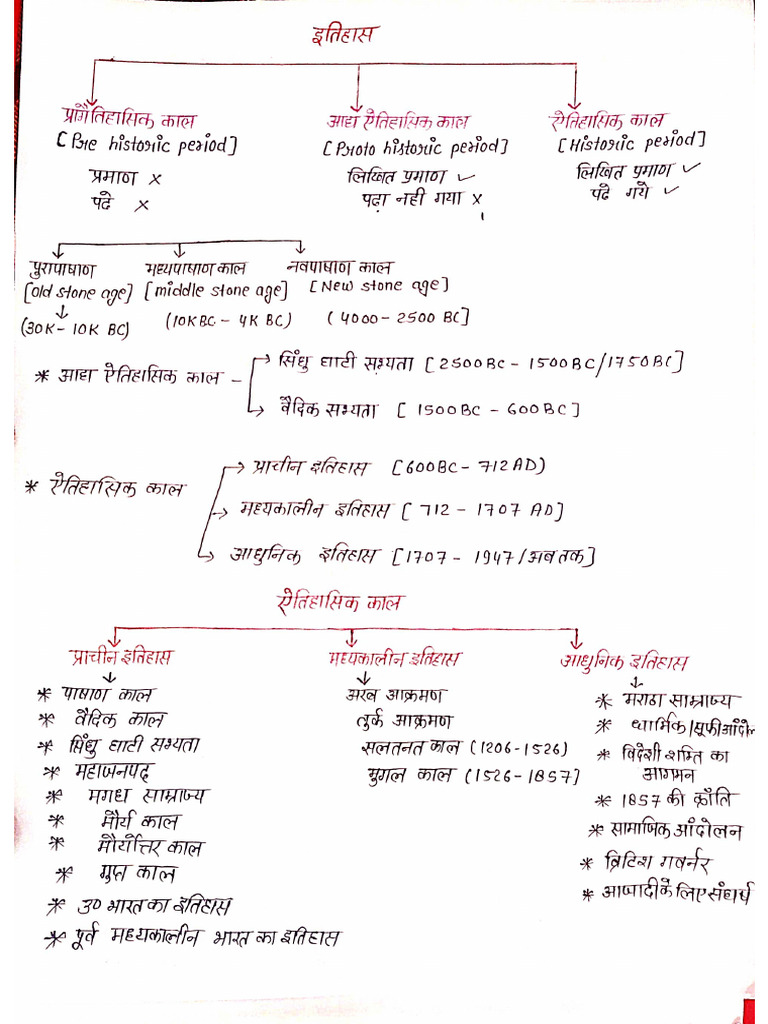 इतिहास
प्रागैतिहासिक काल
[Pre historic period]
प्रमाण ×
पढे ×
आद्य ऐतिहासिक काल
[Proto historic period]
लिखित प्रमाण ✓
पढ़ा नही गया ×
ऐतिहासिक काल
[Historic period]
लिखित प्रमाण ✓
पढे गये ✓
पुरापाषाण
[old stone age]
(30K - 10K BC)
मध्यपाषाण काल
[middle stone age]
(10K BC - 4K BC)
नवपाषाण काल
[New stone age]
(4000 - 2500 BC]
* आद्य ऐतिहासिक काल -
सिंधु घाटी सभ्यता [2500BC - 1500BC/1750BC]
वैदिक सभ्यता [1500BC - 600BC]
* ऐतिहासिक काल
प्राचीन इतिहास [600BC - 712AD)
मध्यकालीन इतिहास [712 - 1707 AD]
आधुनिक इतिहास [1707 - 1947/अब तक]
ऐतिहासिक काल
प्राचीन इतिहास
* पाषाण काल
* वैदिक काल
* सिंधु घाटी सभ्यता
* महाजनपद
* मगध साम्राज्य
* मौर्य काल
* मौर्योत्तर काल
* गुप्त काल
* उ० भारत का इतिहास
* पूर्व मध्यकालीन भारत का इतिहास
मध्यकालीन इतिहास
अरब आक्रमण
तुर्क आक्रमण
सलतनत काल (1206-1526)
मुगल काल (1526-1857)
आधुनिक इतिहास
* मराठा साम्राज्य
* धार्मिक/सूफीआंदोल
* विदेशी शक्ति का
आगमन
* 1857 की क्राँति
* सामाजिक आंदोलन
* ब्रिटिश गवर्नर
* आजादी के लिए संघर्ष